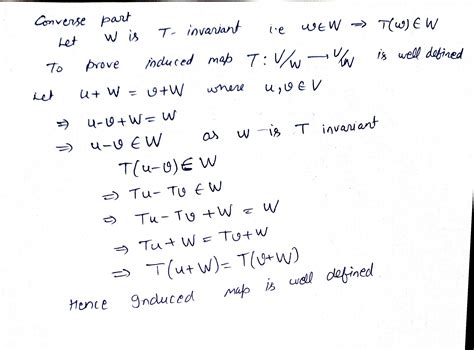 Converse part
Let W is T- invariant i.e w∈W ⇒ T(w)∈W
To prove induced map T: V/W → V/W is well defined
Let u+W = v+W where u,v∈V
⇒ u-v+W=W
⇒ u-v∈W as W is T invariant
T(u-v)∈W
⇒ Tu-Tv∈W
⇒ Tu-Tv+W = W
⇒ Tu+W = Tv+W
⇒ T(u+W)= T(v+W)
Hence Induced map is well defined.